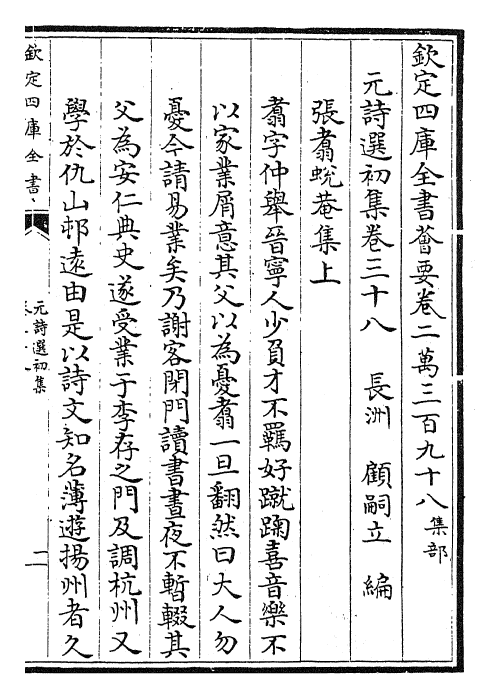 欽定四庫全書薈要卷二萬三百九十八集部
元詩選初集卷三十八 長洲 顧嗣立 編
張翥蛻菴集上
翥字仲舉晉寧人少負才不羈好蹴踘喜音樂不
以家業屑意其父以為憂翥一旦翻然曰大人勿
憂今請易業矣乃謝客閉門讀書晝夜不暫輟其
父為安仁典史遂受業于李存之門及調杭州又
學於仇山邨遠由是以詩文知名薄遊揚州者久
欽定四庫全書
元詩選初集
二